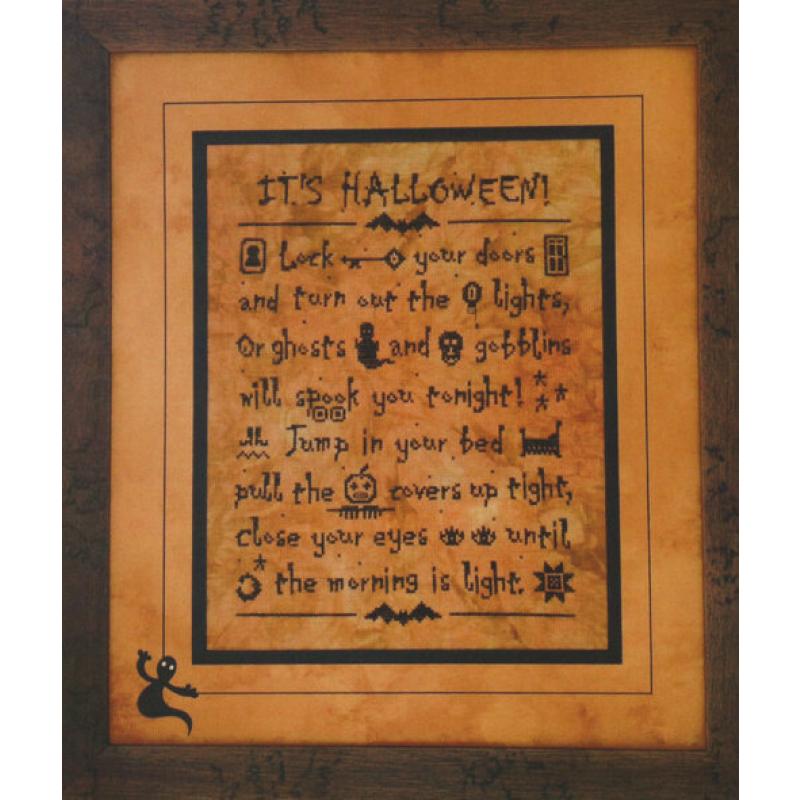 IT'S HALLOWEEN!
Lock your doors
and turn out the lights,
Or ghosts and gobblins
will spook you tonight!
Jump in your bed
pull the covers up tight,
close your eyes until
the morning is light.